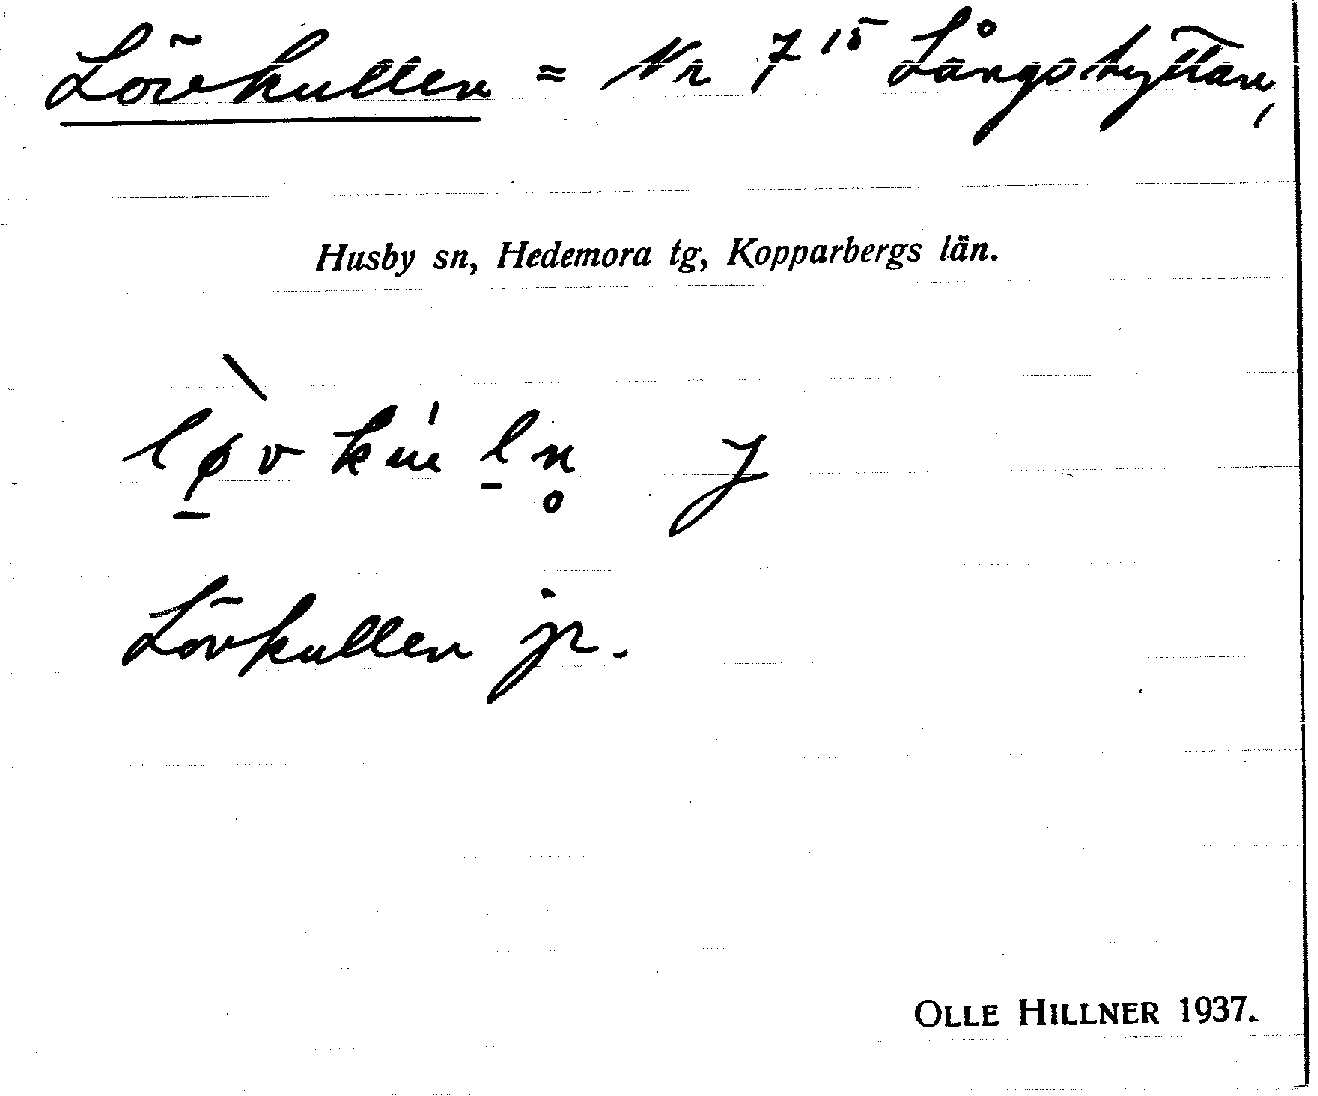 Lövkullen = Nr 7¹⁵ Långshyttan,
Husby sn, Hedemora tg, Kopparbergs län.
lø̱̀v ku̍l̠n̥ J
Lövkullen jr.
OLLE HILLNER 1937.